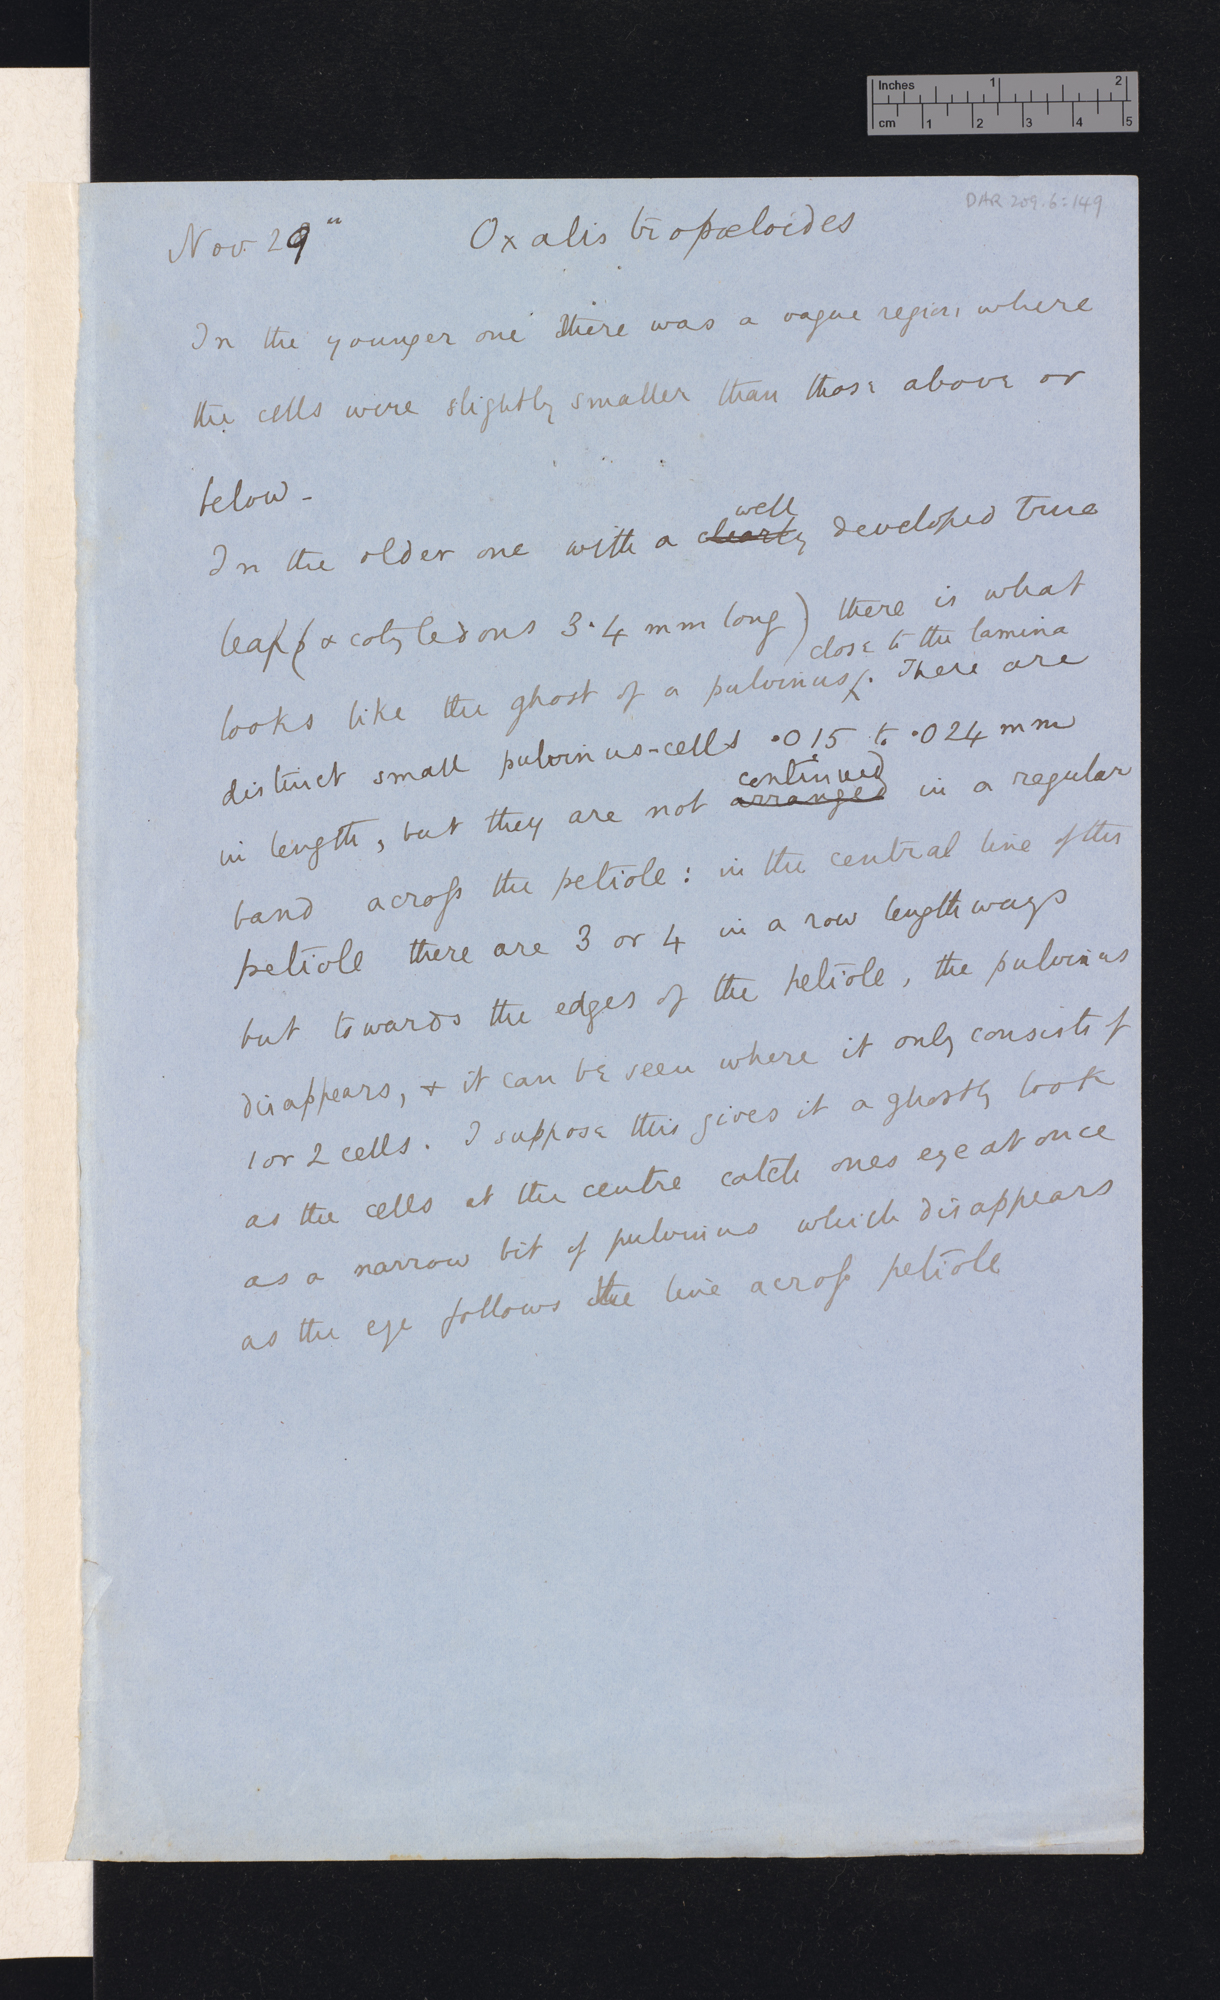 Inches 1 2
cm 1 2 3 4 5
DAR 209.6:149
Nov. 29" Oxalis tropæloides
In the younger one there was a vague region where
the cells were slightly smaller than those above or
below -
well
In the older one with a clearly developed true
leaf (& cotyledons 3·4 mm long) there is what
close to the lamina
looks like the ghost of a pulvinus. There are
distinct small pulvinus-cells ·015 to ·024 mm
continued
in length, but they are not arranged in a regular
band across the petiole: in the central line of the
petiole there are 3 or 4 in a row lengthways
but towards the edges of the petiole, the pulvinus
disappears, & it can be seen where it only consists of
1 or 2 cells. I suppose this gives it a ghostly look
as the cells at the centre catch ones eye at once
as a narrow bit of pulvinus which disappears
as the eye follows the line across petiole